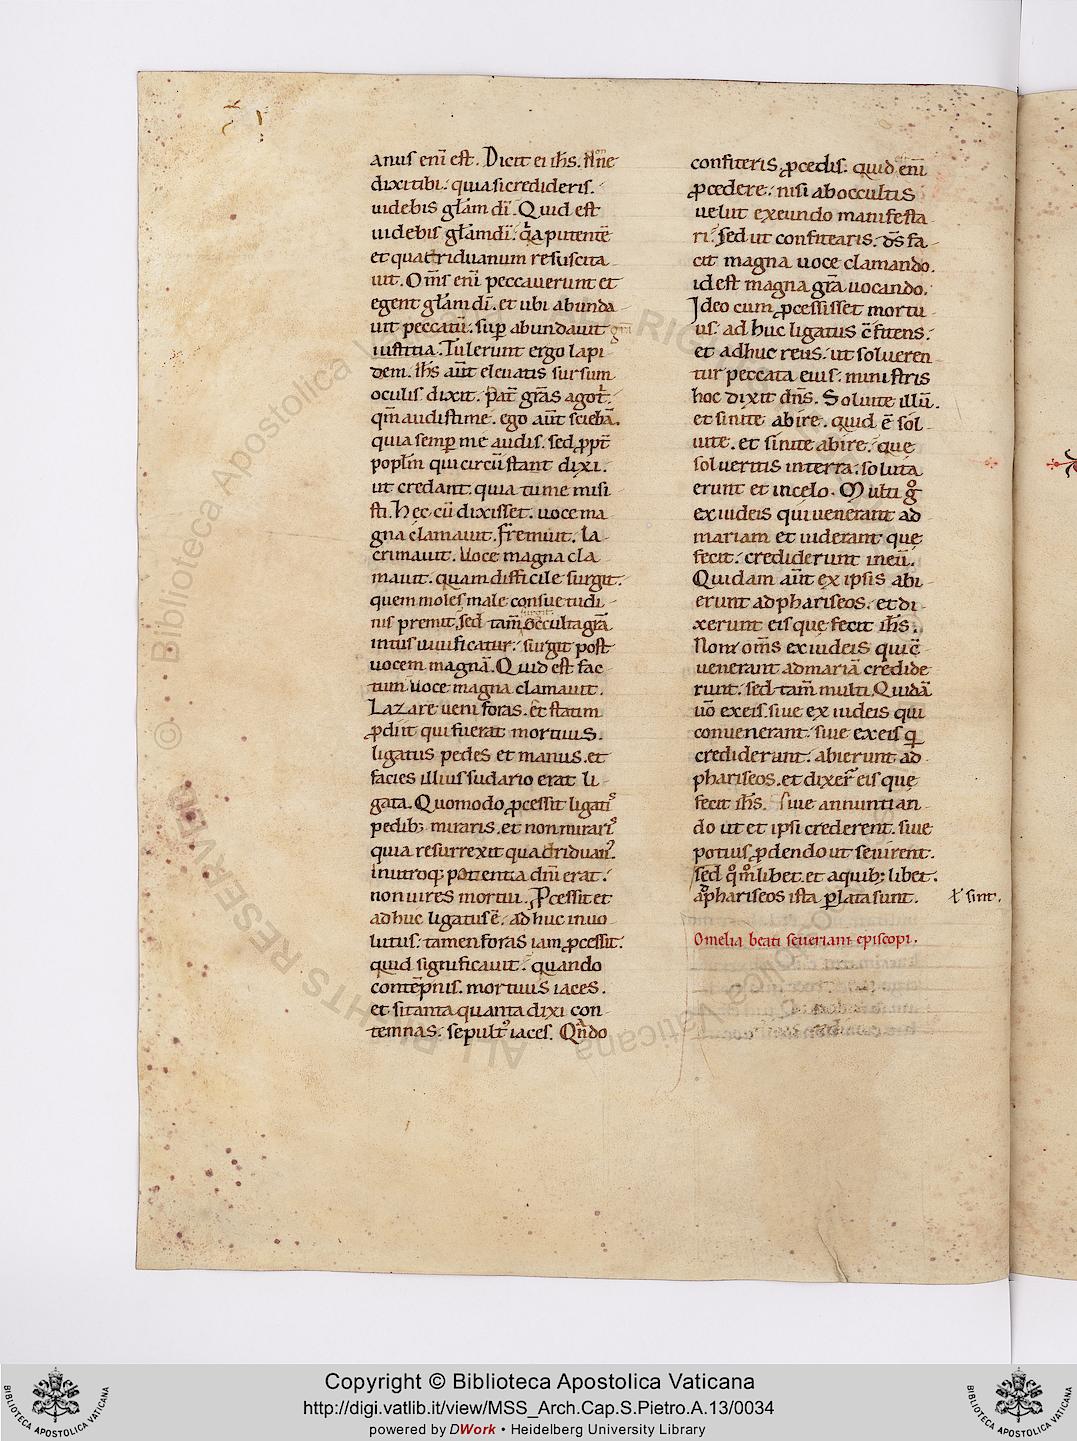 anus eni͂ est. Dicit ei ih̅s. No͂ne
dixi tibi. quia si credideris.
uidebis gl̅am di̅. Quid est
uidebis gl̅am di̅. qa putente͂
et quatriduanum resuscita
uit. Om̅s eni͂ peccauerunt et
egent gl̅am di̅. et ubi abunda
uit peccatu͂. sup abundauit gr̅a
iustitia. Tulerunt ergo lapi
dem. ih̅s aut̅ eleuatis sursum
oculis dixit. Pat̅ gr̅as ago t̅.
qm̅ audisti me. ego aut̅ scieba͂.
quia semp me audis. sed ppt̅
popl̅m qui circu͂stant dixi.
ut credant. quia tu me misi
sti. Hec cu͂ dixisset. uoce ma
gna clamauit. fremuit. la
crimauit. Uoce magna cla
mauit. quam difficile surgit.
quem moles male consuetudi
nis premit. sed tam̅ occulta gr̅a
surgit.
intus uiuificatur. surgit post
uocem magna͂. Quid est fac
tum uoce magna clamauit.
Lazare ueni foras. et statim
prodiit qui fuerat mortuus.
ligatus pedes et manus. et
facies illius sudario erat li
gata. Quomodo pcessit ligatis
pedib; miraris. et non miraris
quia resurrexit quadriduan.
In utroq; potentia dn̅i erat.
non uires mortui. Pcessit et
adhuc ligatus e͂. adhuc inuo
lutus. tamen foras iam pcessit.
quid significauit. quando
conte͂pnis. mortuus iaces.
et si tanta quanta dixi con
temnas. sepultꝰ iaces. Qn̅do
confiteris pcedis. quid eni͂
pcedere. nisi ab occultis
uelut exeundo manifesta
ri. sed ut confitearis. ds̅ fa
cit magna uoce clamando.
id est magna gr̅a uocando.
Ideo cum pcessisset mortu
us. adhuc ligatus c̅fitens.
et adhuc reus. ut solueren
tur peccata eius. ministris
hoc dixit dn̅s. Soluite illu͂.
et sinite abire. quid e͂ sol
uite. et sinite abire. que
solueritis in terra. soluta
erunt et in celo. Multi gº
ex iudeis qui uenerant ad
mariam et uiderant que
fecit. crediderunt in eu͂.
Quidam aut̅ ex ipsis abi
erunt ad phariseos. et di
xerunt eis que fecit ih̅s.
Non om̅s ex iudeis qui c̅
uenerant ad maria͂ credide
runt. sed tam̅ multi. Quida͂
uo̅ ex eis. siue ex iudeis qui
conuenerant. siue ex eis qui
crediderunt. abierunt ad
phariseos. et dixer̅ eis que
fecit ih̅s. siue annuntian
do ut et ipsi crederent. siue
potius pdendo ut seuirent.
sed qm̅libet. et a quib; libet.
a͂ phariseos ista plata sunt.
ł sint.
Omelia beati seueriani episcopi.
Copyright © Biblioteca Apostolica Vaticana
http://digi.vatlib.it/view/MSS_Arch.Cap.S.Pietro.A.13/0034
powered by DWork • Heidelberg University Library